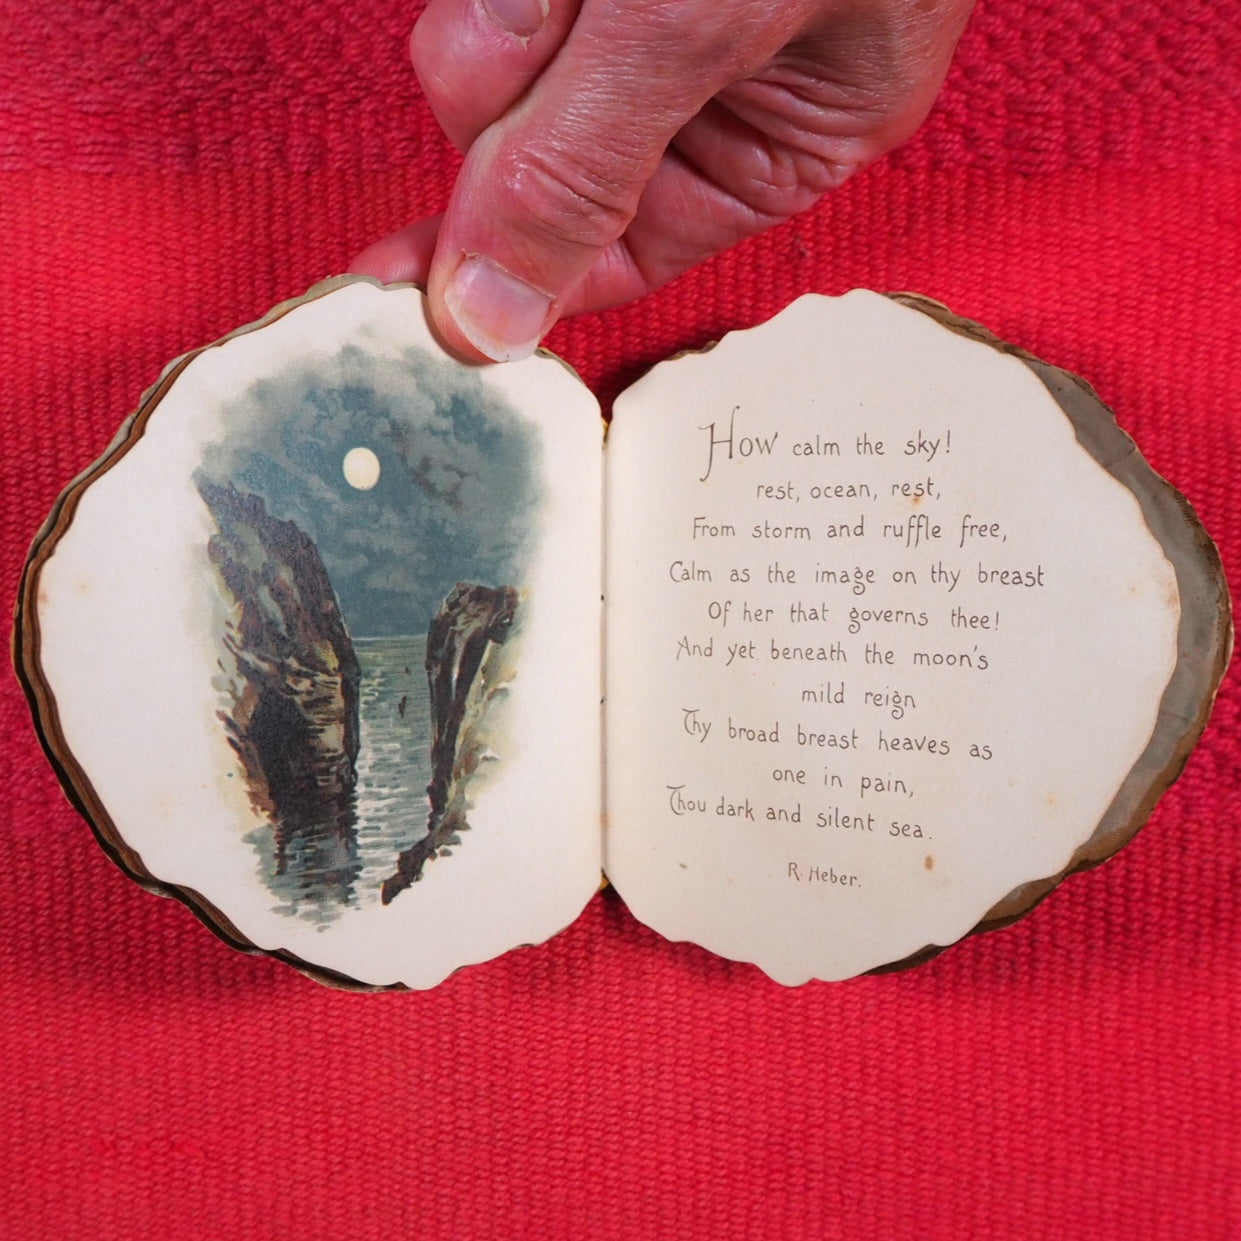 How calm the sky!
rest, ocean, rest,
From storm and ruffle free,
Calm as the image on thy breast
Of her that governs thee!
And yet beneath the moon's
mild reign
Thy broad breast heaves as
one in pain,
Thou dark and silent sea.
R. Heber.